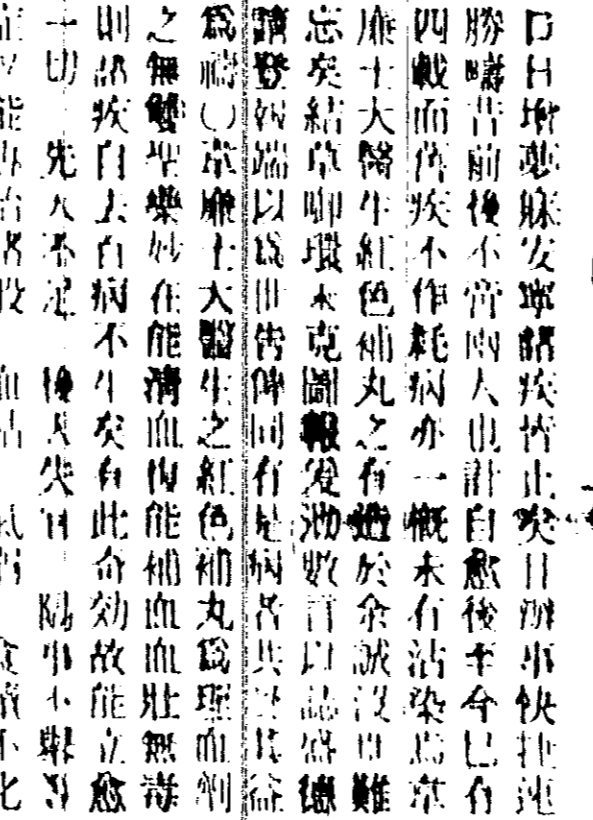 口日增夢寐安寧諸疾皆止矣日辦事快捷迥
勝疇昔前後不啻兩人也計自愈後至今已有
四載而舊疾不作耗病亦一概未有沾染焉韋
廉士大醫生紅色補丸之有造於余誠沒世難
忘矣結草啣環未克圖報爰泐數言以誌盛德
謹登報端以爲世告俾同有是病者共受其益
爲禱○韋廉士大醫生之紅色補丸爲理血劑
之無雙聖藥妙在能淸血復能補血血壯無毒
則諸疾自去百病不生矣有此奇効故能立愈
一切 先天不足 後天失調 陽事不舉